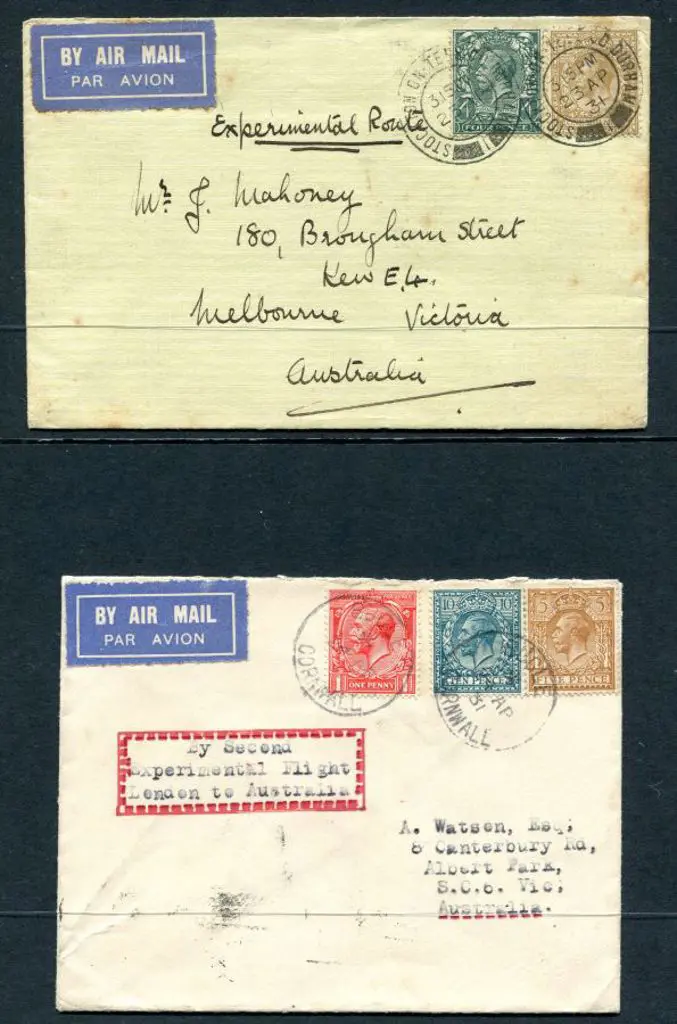 BY AIR MAIL
PAR AVION
FOUR PENCE
STOCKTON-ON-TEES
DURHAM
3.15 PM
AP
31
Experimental Route
Mr. J. Mahoney
180, Brougham Street
Kew E.4.
Melbourne Victoria
Australia
BY AIR MAIL
PAR AVION
1 ONE PENNY 1
10 10
TEN PENCE
5 5
FIVE PENCE
CORNWALL
CORNWALL
AP
31
By Second
Experimental Flight
London to Australia
A. Watson, Esq;
8 Canterbury Rd,
Albert Park,
S.C.6. Vic;
Australia.